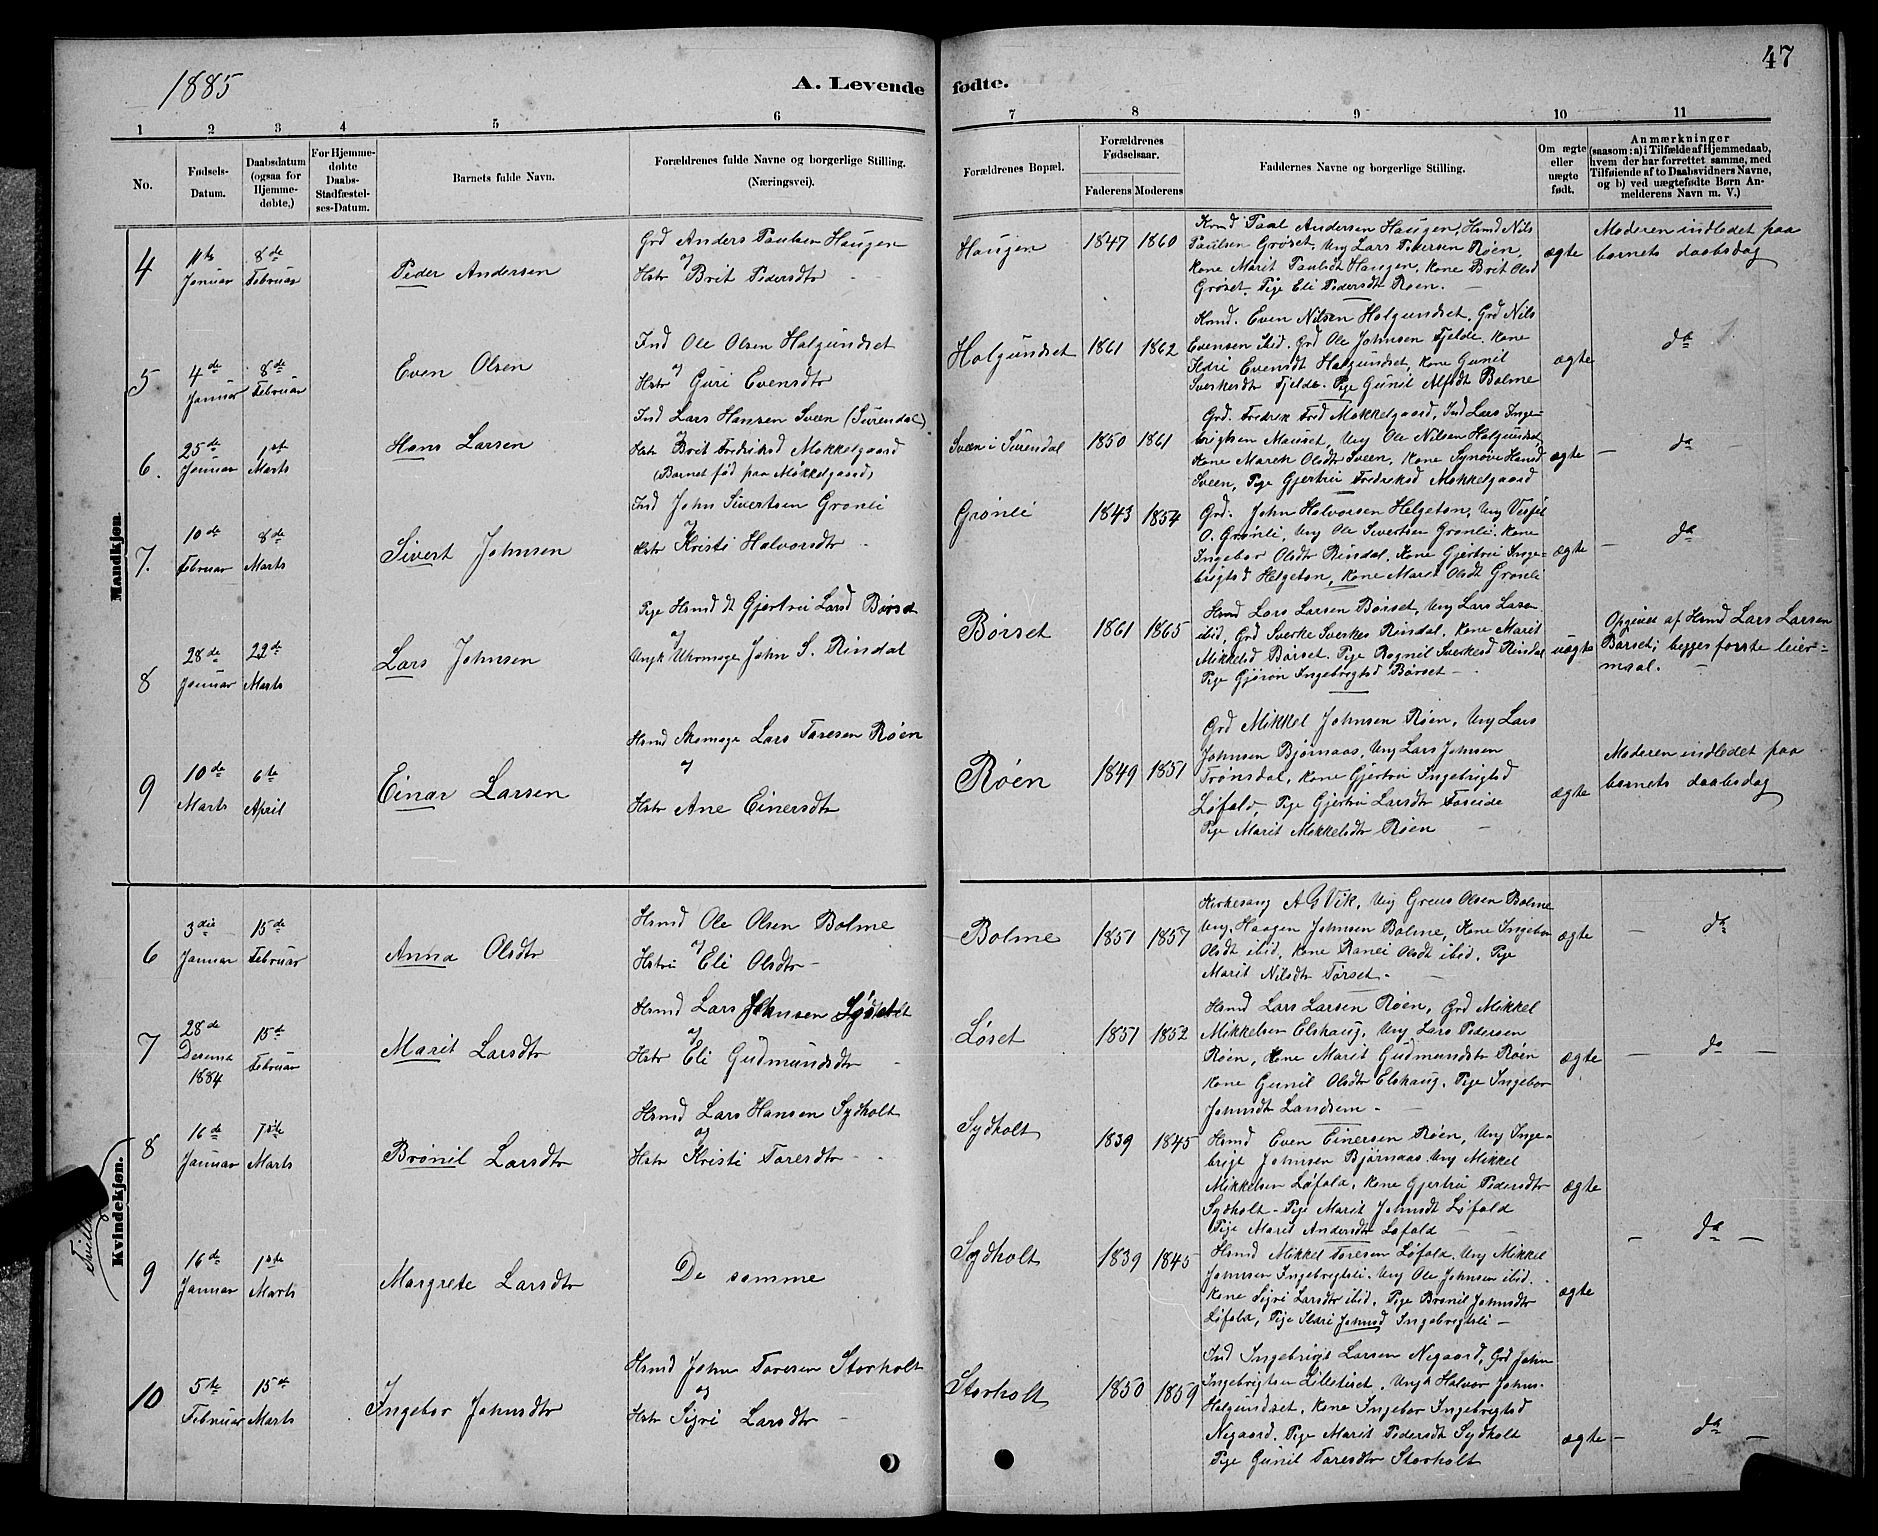 1885
A. Levende fødte.
47
1 2 3 4 5 6 7 8 9 10 11
No.
Fødsels-
Datum.
Daabsdatum
(ogsaa for
Hjemme-
døbte.)
For Hjemme-
døbte
Daabs-
Stadfæstel-
ses-Datum.
Barnets fulde Navn.
Forældrenes fulde Navne og borgerlige Stilling.
(Næringsvei).
Forældrenes Bopæl.
Forældrenes
Fødselsaar.
Faderens Moderens
Faddernes Navne og borgerlige Stilling.
Om ægte
eller
uægte
født.
Anmærkninger
(saasom: a) i Tilfælde af Hjemmedaab,
hvem der har forrettet samme, med
Tilføiende af to Daabsvidners Navne,
og b) ved uægtefødte Børn An-
melderens Navn m. V.)
Mandkjøn.
4
11te
Januar
8de
Februar
Peder Andersen
Grd Anders Paulsen Haugen
og
Hstr Brit Pedersdtr
Haugen
1847 1860
Kmd Paal Andersen Haugen, Hsmd Nils
Paulsen Grøset, Ung Lars Pedersen Røen,
Kone Marit Paulsdt Haugen, Kone Brit Olsd
Grøset, Pige Eli Pedersdt Røen.
ægte
Moderen indledet paa
barnets daabsdag
5
4de
Januar
8de
Februar
Even Olsen
Ind Ole Olsen Halgundset
og
Hstr Guri Evensdtr
Halgundset
1861 1862
Hsmd. Even Nilsen Halgundset, Grd Nils
Evensen ibid. Grd Ole Johnsen Fjelde, Kone
Ildri Evensdt Halgundset, Kone Gunil
Sverkesdtr Fjelde. Pige Gunil Alfsdt Bolme
ægte
da
6.
25de
Januar
1ste
Marts
Hans Larsen
Ind Lars Hansen Sveen (Surendal)
og
Hstr Brit Fredriksd Mokkelgaard
(Barnet fød paa Møkkelgaard)
Sveen i Surendal
1850 1861
Grd. Fredrik Fred Mokkelgaard, Ind Lars Inge-
brigtsen Mauset, Ung Ole Nilsen Halgundset
Kone Mareh Olsdtr Sveen, Kone Synøve Hansd
Sveen, Pige Gjertrui Fredriksd Mokkelgaard
ægte
da
7.
10de
Februar
8de
Marts
Sivert Johnsen
Ind John Sivertsen Grønli
og
Hstr Kristi Halvorsdtr
Grønli
1843 1854
Grd. John Halvorsen Helgeton, Ung
O. Grønli, Ung Ole Sivertsen Grønli. Kone
Ingebor Olsdtr Rindal, Kone Gjertrui Inge-
brigtsd Helgeton, Kone Marit Olsdt Grønli
ægte
da
8
28de
Januar
22de
Marts
Lars Johnsen
Pige Hsmd dt Gjertrui Larsd Børset
og
Ungk Uhrmager John S. Rindal
Børset
1861 1865
Hsmd Lars Larsen Børset, Ung Lars Larsen
ibid, Grd Sverke Sverkes Rindal, Kone Marit
Mikkelsd Børset. Pige Ragnil Sverkesd Rindal
Pige Gjøron Ingebrigtsd Børset
uægte
Opgivet af Hsmd Lars Larsen
Børset; begges første leier-
maal.
9
10de
Marts
6te
April
Einar Larsen
Hsmd Skomager Lars Toresen Røen
og
Hstr Ane Einersdtr
Røen
1849 1851
Grd Mikkel Johnsen Røen, Ung Lars
Johnsen Bjørnaas, Ung Lars Johnsen
Trønsdal, Kone Gjertrui Ingebrigtsd
Løfald, Pige Gjertrui Larsdtr Foseide
Pige Marit Mikkelsdtr Røen
ægte
Moderen indledet paa
barnets daabsdag
Kvindekjøn.
6
3die
Januar
15de
Februar
Anna Olsdtr
Hsmd Ole Olsen Bolme
og
Hstr Eli Olsdtr
Bolme
1851 1857
Kirkesang A G Vik, Ung Greus Olsen Bolme
Ung Haagen Johnsen Bolme, Kone Ingebor
Olsdt ibid, Kone Ranei Olsdt ibid, Pige
Marit Nilsdtr Torset.
ægte
da
7
28de
Desemr
1884
15de
Februar
Marit Larsdtr
Hsmd Lars Johnsen
og
Hstr Eli Gudmundsdtr
Løset
1851 1852
Hsmd Lars Larsen Røen, Grd Mikkel
Mikkelsen Elshaug, Ung Lars Pedersen
Røen, Kone Marit Gudmundsdtr Røen
Kone Gunil Olsdtr Elshaug, Pige Ingebor
Johnsdt Landsem
ægte
da
8
16de
Januar
1ste
Marts
Brønil Larsdtr
Hsmd Lars Hansen Sydholt
og
Hstr Kristi Toresdtr
Sydholt
1839 1845
Hsmd Even Einersen Røen, Ung Inge-
brigt Johnsen Bjørnaas, Ung Mikkel
Mikkelsen Løfald, Kone Gjertrui Pedersdtr
Sydholt, Pige Marit Johnsdt Løfald
Pige Marit Andersdtr Løfald
ægte
9
16de
Januar
1ste
Marts
Margrete Larsdtr
De samme
Sydholt
1839 1845
Hsmd Mikkel Toresen Løfald, Ung Mikkel
Johnsen Ingebrigtsli. Ung Ole Johnsen ibid.
Kone Sigri Larsdtr ibid, Pige Brønil Johnsdtr
Løfald, Pige Ildri Johnsd Ingebrigtsli
ægte
da
10
5te
Februar
15de
Marts
Ingebor Johnsdtr
Hsmd John Toresen Storholt
og
Hstr Sigri Larsdtr
Storholt
1850 1859
Ind Ingebrigt Larsen Negaard, Grd John
Ingebrigtsen Lilleteiet, Ungk Halvor Johns-
Halgundset, Kone Ingebor Ingebrigtsd
Negaard. Pige Marit Pedersdt Sydholt
Pige Gunil Toresdtr Storholt
ægte
da